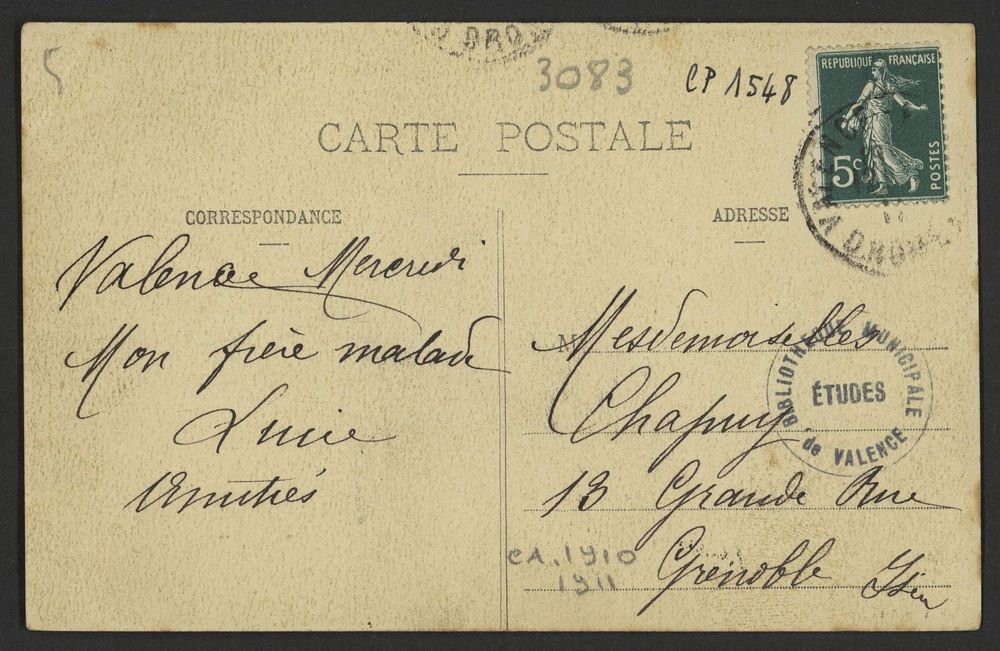 5
DRO
3083
CP 1548
RÉPUBLIQUE FRANÇAISE
5c
POSTES
VALENCE
DROME
CARTE POSTALE
CORRESPONDANCE
Valence Mercredi
Mon frère malade
Lucie
Amitiés
ADRESSE
M
Mesdemoiselles
Chapuy
13 Grande Rue
Grenoble Isère
BIBLIOTHEQUE MUNICIPALE
ÉTUDES
de VALENCE
CA. 1910
1911